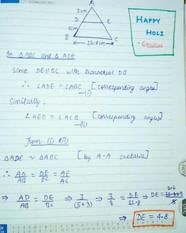 A
D
E
B
C
HAPPY
HOLI
In △ABC and △ADE
Since DE||BC with transversal DB
∴ ∠ADE = ∠ABC [corresponding angles]
Similarly,
∠AED = ∠ACB [corresponding angles]
From (i) &(ii)
△ADE ~ △ABC [by A-A criteria]
∴ AD/AB = DE/BC = AE/AC
⇒ AD/AB = DE/BC
⇒ DE = 4.8